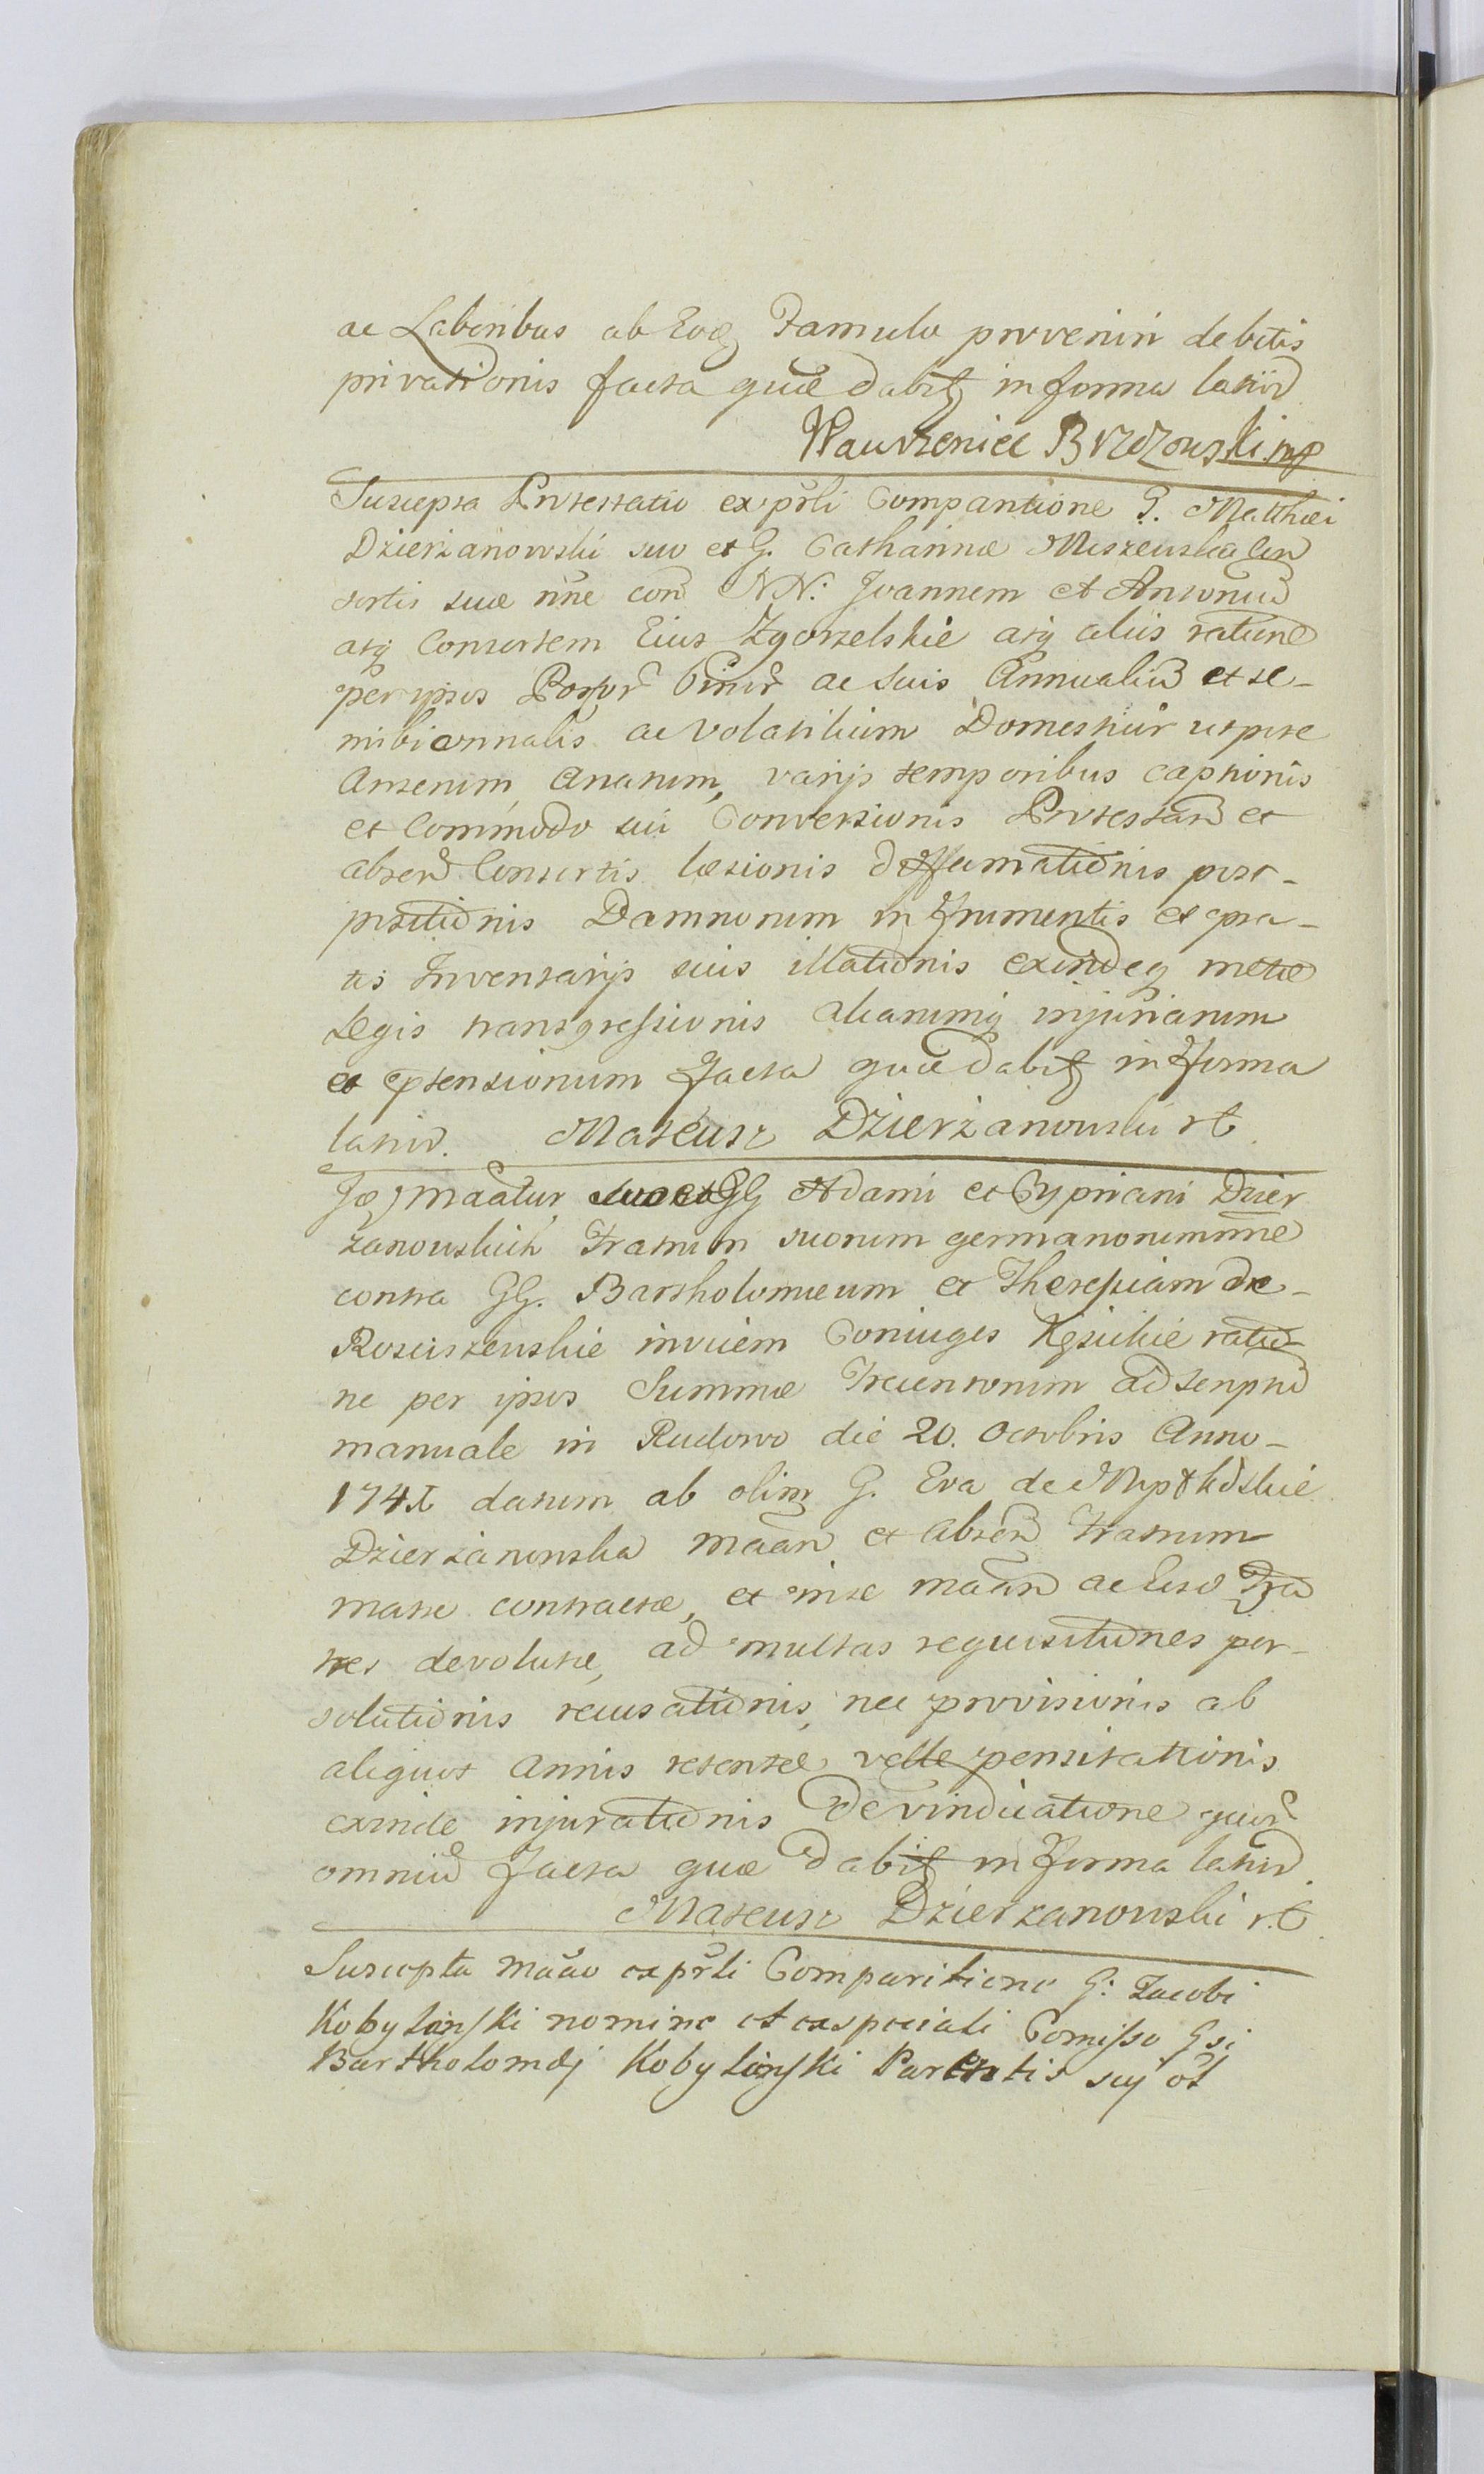 ac Laboribus ab Eodē Famulo proveniri debitis
privationis facta quæ dabit in forma latiō
Wawrzeniec Brzozowski mp
Suscepta Protestatio ex pñli Comparitione G. Matthæi
Dzierżanowski suo et G. Catharinæ Miszewska Con
sortis suæ nñe con NN: Joannem et Antoniū
atq Consortem Eius Zgorzelskie atq aliis ratione
per ipsos Porcor ac Suis Annualiū et se-
mibiannalis ac Volatilium Domesticūr utpote
Anserum, Anatum, varijs temporibus captionis
et Commodo sui Conversionis Protestan et
absen Consortis læsionis diffamationis post-
positionis Damnorum in frumentis et pra-
tis Inventarijs suis illationis exindeq metæ
Legis transgressionis aliarumq injuriarum
et ptensionum facta quæ dabit in fforma
latiō. Mateusz Dzierżanowski
Idē maatur suo et GG Adami et Cypriani Dzier
zanowskich Fratrum suorum germanorum nñe
contra GG. Bartholomæum et Theressiam de
Rosciszewskie invicem Coniuges Kęsickie ratio
ne per ipsos Summæ Trecentorum ad scriptū
manuale in Rudowo die 20. Octobris Anno
174 datum ab olim G. Eva de
Dzierzanowska maan et absen Fratrum
matre contractæ, et in se maan ac Eius Fra
tres devolutæ, ad multas requisitiones per-
solutionis recusationis, nec provisionis ab
aliquot Annis retentæ velle pensitationis
exinde injuriationis de vindicatione quor
omniū facta quæ dabit in fforma latiō.
Mateusz Dzierzanowski
Suscepta maao ex pñli Comparitione G: Jacobi
Kobylinski nomine et ex speciali Comisso Gsi
Bartholomæj Kobylinski Parentis suj et